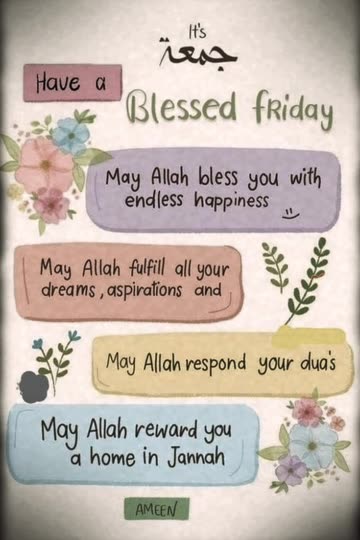 It's
جمعة
Have a
Blessed friday
May Allah bless you with
endless happiness
May Allah fulfill all your
dreams, aspirations and
May Allah respond your dua's
May Allah reward you
a home in Jannah
AMEEN